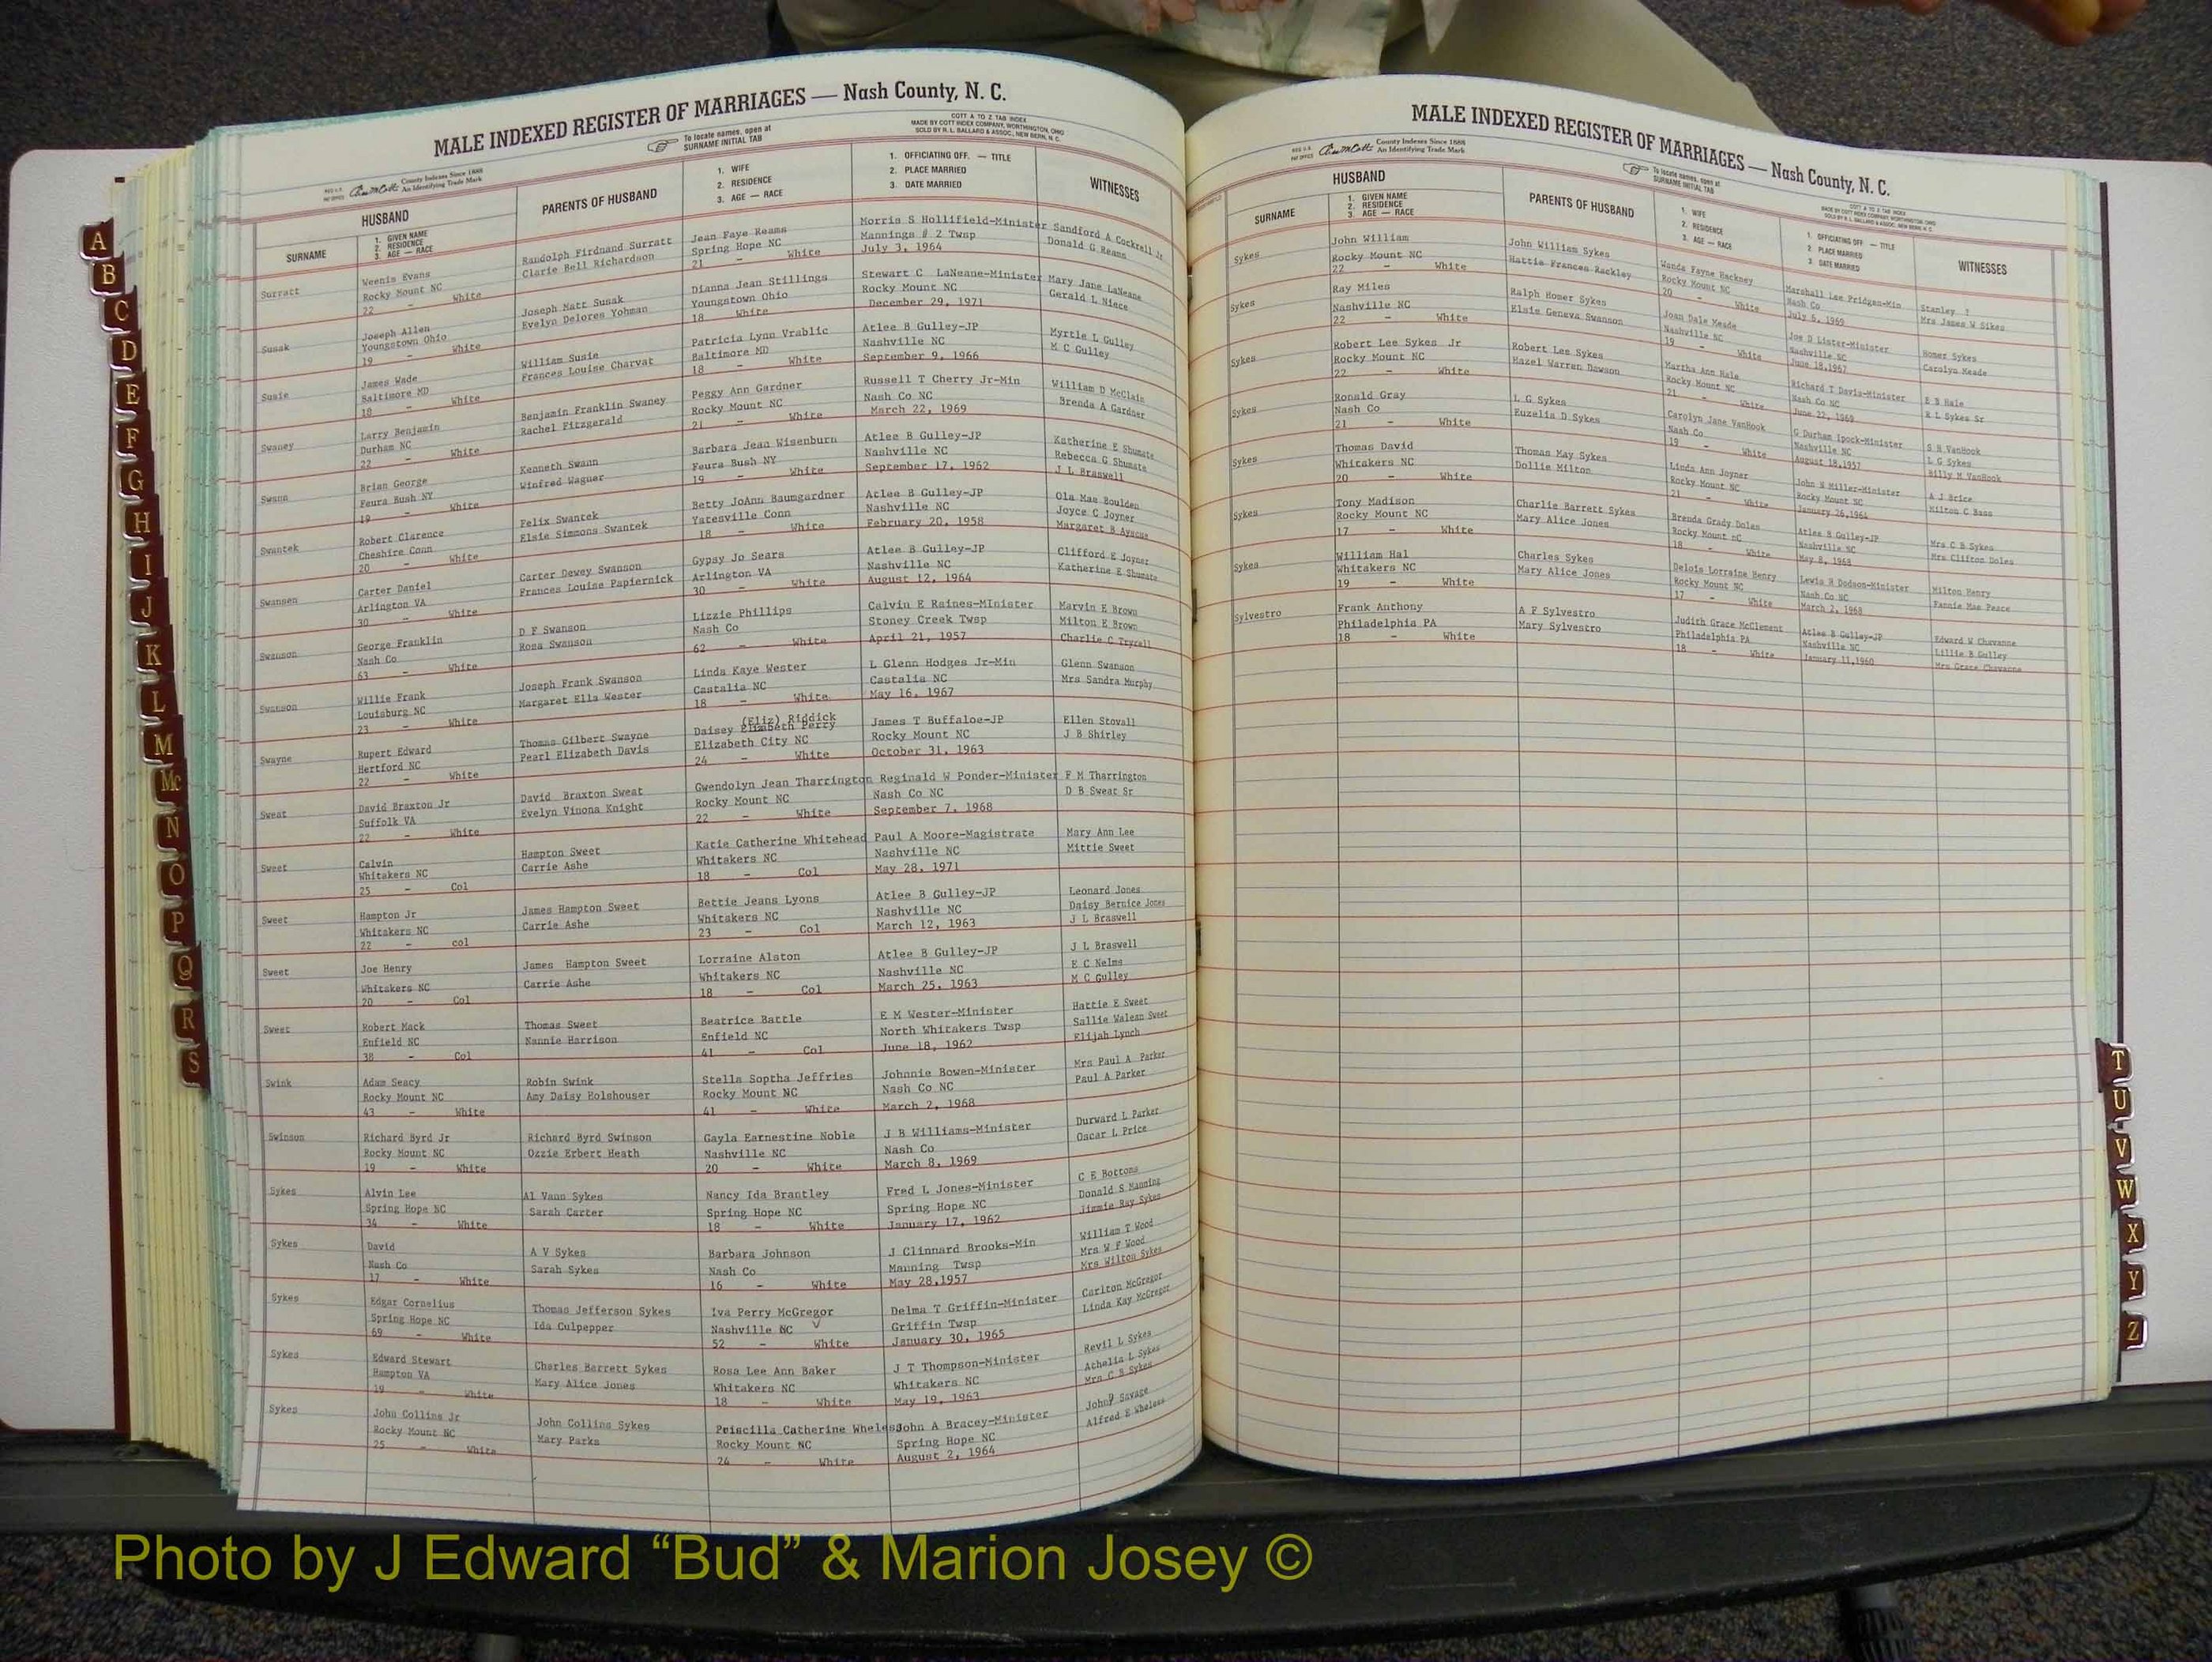 MALE INDEXED REGISTER OF MARRIAGES — Nash County, N. C.
To locate names, open at
SURNAME INITIAL TAB
COTT A TO Z TAB INDEX
MADE BY COTT INDEX COMPANY, WORTHINGTON, OHIO
SOLD BY R. L. BALLARD & ASSOC., NEW BERN, N. C.
County Indexes Since 1888
An Identifying Trade Mark
HUSBAND
SURNAME
1. GIVEN NAME
2. RESIDENCE
3. AGE — RACE
PARENTS OF HUSBAND
1. WIFE
2. RESIDENCE
3. AGE — RACE
1. OFFICIATING OFF. — TITLE
2. PLACE MARRIED
3. DATE MARRIED
WITNESSES
Surratt Weenis Evans Randolph Firdnand Surratt Jean Faye Reams Morris S Hollifield-Minister Sandford A Cockrell Jr
Rocky Mount NC Clarie Bell Richardson Spring Hope NC Mannings # 2 Twsp Donald G Reams
22 - White 21 - White July 3, 1964
Susak Joseph Allen Joseph Matt Susak Dianna Jean Stillings Stewart C LaNeane-Minister Mary Jane LaNeane
Youngstown Ohio Evelyn Delores Yohman Youngstown Ohio Rocky Mount NC Gerald L Niece
19 - White 18 - White December 29, 1971
Susie James Wade William Susie Patricia Lynn Vrablic Atlee B Gulley-JP Myrtle L Gulley
Baltimore MD Frances Louise Charvat Baltimore MD Nashville NC M C Gulley
18 - White 18 - White September 9, 1966
Swaney Larry Benjamin Benjamin Franklin Swaney Peggy Ann Gardner Russell T Cherry Jr-Min William D McClain
Durham NC Rachel Fitzgerald Rocky Mount NC Nash Co NC Brenda A Gardner
22 - White 21 - White March 22, 1969
Swann Brian George Kenneth Swann Barbara Jean Wisenburn Atlee B Gulley-JP Katherine E Shumate
Feura Bush NY Winfred Wagner Feura Bush NY Nashville NC Rebecca G Shumate
19 - White 19 - White September 17, 1962 J L Braswell
Swantek Robert Clarence Felix Swantek Betty JoAnn Baumgardner Atlee B Gulley-JP Ola Mae Boulden
Cheshire Conn Elsie Simmons Swantek Yatesville Conn Nashville NC Joyce C Joyner
20 - White 18 - White February 20, 1958 Margaret B Ayscue
Swansen Carter Daniel Carter Dewey Swanson Gypsy Jo Sears Atlee B Gulley-JP Clifford E Joyner
Arlington VA Frances Louise Papiernick Arlington VA Nashville NC Katherine E Shumate
30 - White 30 - White August 12, 1964
Swanson George Franklin D F Swanson Lizzie Phillips Calvin E Raines-MInister Marvin E Brown
Nash Co Rosa Swanson Nash Co Stoney Creek Twsp Milton E Brown
63 - White 62 - White April 21, 1957 Charlie C Tyrrell
Swanson Willie Frank Joseph Frank Swanson Linda Kaye Wester L Glenn Hodges Jr-Min Glenn Swanson
Louisburg NC Margaret Ella Wester Castalia NC Castalia NC Mrs Sandra Murphy
23 - White 18 - White May 16, 1967
(Eliz) Riddick
Swayne Rupert Edward Thomas Gilbert Swayne Daisey Elizabeth Perry James T Buffaloe-JP Ellen Stovall
Hertford NC Pearl Elizabeth Davis Elizabeth City NC Rocky Mount NC J B Shirley
22 - White 24 - White October 31, 1963
Sweat David Braxton Jr David Braxton Sweat Gwendolyn Jean Tharrington Reginald W Ponder-Minister F M Tharrington
Suffolk VA Evelyn Vinona Knight Rocky Mount NC Nash Co NC D B Sweat Sr
22 - White 22 - White September 7, 1968
Sweet Calvin Hampton Sweet Katie Catherine Whitehead Paul A Moore-Magistrate Mary Ann Lee
Whitakers NC Carrie Ashe Whitakers NC Nashville NC Mittie Sweet
25 - Col 18 - Col May 28, 1971
Sweet Hampton Jr James Hampton Sweet Bettie Jeans Lyons Atlee B Gulley-JP Leonard Jones
Whitakers NC Carrie Ashe Whitakers NC Nashville NC Daisy Bernice Jones
22 - col 23 - Col March 12, 1963 J L Braswell
Sweet Joe Henry James Hampton Sweet Lorraine Alston Atlee B Gulley-JP J L Braswell
Whitakers NC Carrie Ashe Whitakers NC Nashville NC E C Nelms
20 - Col 18 - Col March 25, 1963 M C Gulley
Sweet Robert Mack Thomas Sweet Beatrice Battle E M Wester-Minister Hattie E Sweet
Enfield NC Nannie Harrison Enfield NC North Whitakers Twsp Sallie Walean Sweet
38 - Col 41 - Col June 18, 1962 Elijah Lynch
Swink Adam Seacy Robin Swink Stella Soptha Jeffries Johnnie Bowen-Minister Mrs Paul A Parker
Rocky Mount NC Amy Daisy Holshouser Rocky Mount NC Nash Co NC Paul A Parker
43 - White 41 - White March 2, 1968
Swinson Richard Byrd Jr Richard Byrd Swinson Gayla Earnestine Noble J B Williams-Minister Durward L Parker
Rocky Mount NC Ozzie Erbert Heath Nashville NC Nash Co Oscar L Price
19 - White 20 - White March 8, 1969
Sykes Alvin Lee Al Vann Sykes Nancy Ida Brantley Fred L Jones-Minister C E Bottoms
Spring Hope NC Sarah Carter Spring Hope NC Spring Hope NC Donald S Manning
34 - White 18 - White January 17, 1962 Jimmie Ray Sykes
Sykes David A V Sykes Barbara Johnson J Clinnard Brooks-Min William T Wood
Nash Co Sarah Sykes Nash Co Manning Twsp Mrs W F Wood
17 - White 16 - White May 28,1957 Mrs Wilton Sykes
Sykes Edgar Cornelius Thomas Jefferson Sykes Iva Perry McGregor Delma T Griffin-Minister Carlton McGregor
Spring Hope NC Ida Culpepper Nashville NC Griffin Twsp Linda Kay McGregor
69 - White 52 - White January 30, 1965
Sykes Edward Stewart Charles Barrett Sykes Rosa Lee Ann Baker J T Thompson-Minister Revil L Sykes
Hampton VA Mary Alice Jones Whitakers NC Whitakers NC Athelia L Sykes
19 - White 18 - White May 19, 1963 Mrs C B Sykes
Sykes John Collins Jr John Collins Sykes Priscilla Catherine Wheless John A Bracey-Minister John P Savage
Rocky Mount NC Mary Parks Rocky Mount NC Spring Hope NC Alfred E Wheless
25 - White 24 - White August 2, 1964
MALE INDEXED REGISTER OF MARRIAGES — Nash County, N. C.
County Indexes Since 1888
An Identifying Trade Mark
To locate names, open at
SURNAME INITIAL TAB
COTT A TO Z TAB INDEX
MADE BY COTT INDEX COMPANY, WORTHINGTON, OHIO
SOLD BY R. L. BALLARD & ASSOC., NEW BERN, N. C.
HUSBAND
SURNAME
1. GIVEN NAME
2. RESIDENCE
3. AGE — RACE
PARENTS OF HUSBAND
1. WIFE
2. RESIDENCE
3. AGE — RACE
1. OFFICIATING OFF. — TITLE
2. PLACE MARRIED
3. DATE MARRIED
WITNESSES
Sykes John William John William Sykes Wanda Fayne Hackney Marshall Lee Pridgen-Min Stanley ?
Rocky Mount NC Hattie Frances Rackley Rocky Mount NC Nash Co Mrs James W Sikes
22 - White 20 - White July 6, 1969
Sykes Ray Miles Ralph Homer Sykes Joan Dale Meade Joe D Lister-Minister Homer Sykes
Nashville NC Elsie Geneva Swanson Nashville NC Nashville NC Carolyn Meade
22 - White 19 - White June 18,1967
Sykes Robert Lee Sykes Jr Robert Lee Sykes Martha Ann Hale Richard T Davis-Minister E B Hale
Rocky Mount NC Hazel Warren Dawson Rocky Mount NC Nash Co NC R L Sykes Sr
22 - White 21 - White June 22, 1969
Sykes Ronald Gray L G Sykes Carolyn Jane VanHook G Durham Ipock-Minister S H VanHook
Nash Co Euzelia D Sykes Nash Co Nashville NC L G Sykes
21 - White 19 - White August 18,1957 Billy M VanHook
Sykes Thomas David Thomas May Sykes Linda Ann Joyner John N Miller-Minister A J Brice
Whitakers NC Dollie Milton Rocky Mount NC Rocky Mount NC Milton C Bass
20 - White 21 - White January 26,1964
Sykes Tony Madison Charlie Barrett Sykes Brenda Grady Doles Atlee B Gulley-JP Mrs C B Sykes
Rocky Mount NC Mary Alice Jones Rocky Mount NC Nashville NC Mrs Clifton Doles
17 - White 18 - White May 8, 1968
Sykes William Hal Charles Sykes Delois Lorraine Henry Lewis H Dodson-Minister Milton Henry
Whitakers NC Mary Alice Jones Rocky Mount NC Nash Co NC Fannie Mae Peace
19 - White 17 - White March 2, 1968
Sylvestro Frank Anthony A F Sylvestro Judith Grace McClement Atlee B Gulley-JP Edward W Chavanne
Philadelphia PA Mary Sylvestro Philadelphia PA Nashville NC Lillie B Gulley
18 - White 18 - White January 11,1960 Mrs Grace Chavanne
A
B
C
D
E
F
G
H
I
J
K
L
M
Mc
N
O
P
Q
R
S
T
U
V
W
X
Y
Z
Photo by J Edward “Bud” & Marion Josey ©